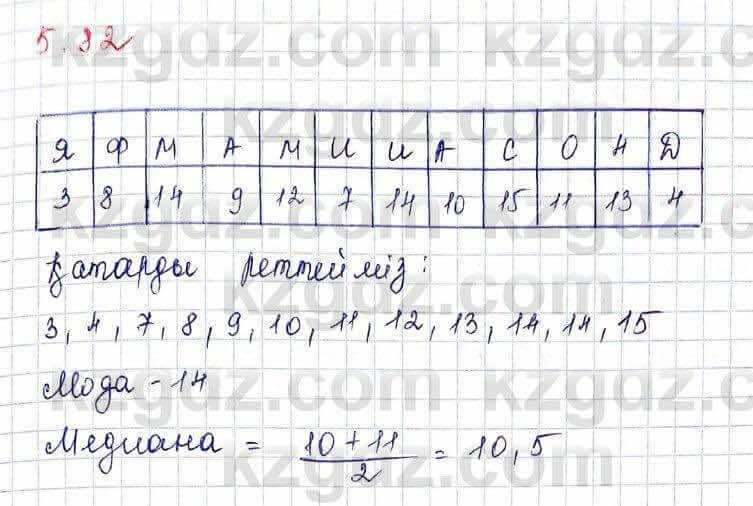 5.32
Я Ф М А М И И А С О Н Д
3 8 14 9 12 7 14 10 15 11 13 4
Қатарды реттейміз:
3, 4, 7, 8, 9, 10, 11, 12, 13, 14, 14, 15
Мода - 14
Медиана = 10 + 11 / 2 = 10,5
kzgdz.com